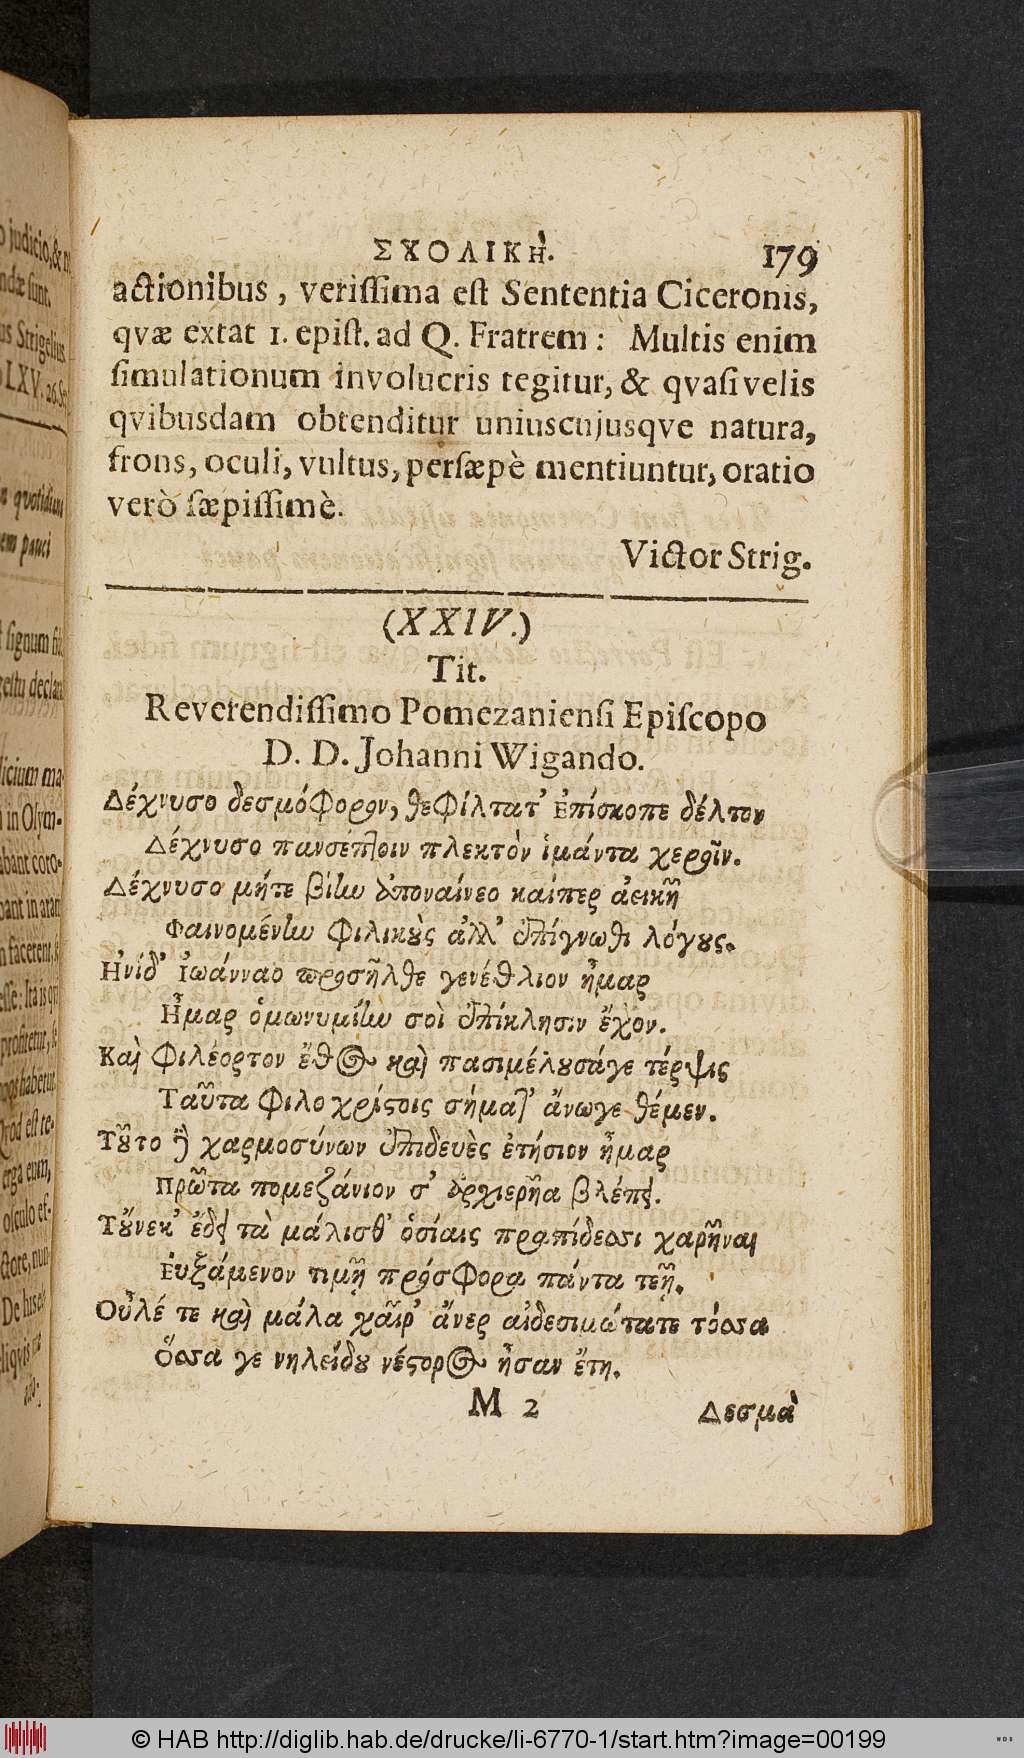 ΣΧΟΛΙΚῊ. 179
actionibus, verissima est Sententia Ciceronis,
qvæ extat 1. epist. ad Q. Fratrem: Multis enim
simulationum involucris tegitur, & qvasi velis
qvibusdam obtenditur uniuscujusqve natura,
frons, oculi, vultus, persæpè mentiuntur, oratio
verò sæpissimè.
Victor Strig.
(XXIV.)
Tit.
Reverendissimo Pomezaniensi Episcopo
D. D. Johanni Wigando.
Δέχνυσο δεσμόφορον, θεφίλτατ' ἐπίσκοπε δέλτον
Δέχνυσο πανσέπτοιν πλεκτὸν ἱμάντα χεροῖν.
Δέχνυσο μήτε βίῳ ἀποναίνεο καίπερ ἀεικῆ
Φαινομένῳ φιλικοὺς ἀλλ' ἐπίγνωθι λόγους.
Ηνίδ' Ιωάνναο προσῆλθε γενέθλιον ἦμαρ
Ημαρ ὁμωνυμίην σοὶ ἐπίκλησιν ἔχον.
Καὶ φιλέορτον ἔθος καὶ πασιμέλουσάγε τέρψις
Ταῦτα φιλοχρίστοις σήματ' ἄνωγε θέμεν.
Τοῦτο δὲ χαρμοσύνων ἐπιδευὲς ἐτήσιον ἦμαρ
Πρῶτα πομεζάνιον σ' ἀρχιερῆα βλέπει.
Τούνεκ' ἔδει τὰ μάλισθ' ὁσίαις πραπίδεσσι χαρῆναι
Ευξάμενον τιμῆ πρόσφορα πάντα τεῆ.
Οὖλέ τε καὶ μάλα χαῖρ' ἄνερ αἰδεσιμώτατε τόσσα
Ὅσσα γε νηλείδου νέστορος ἦσαν ἔτη.
M 2 Δεσμὰ